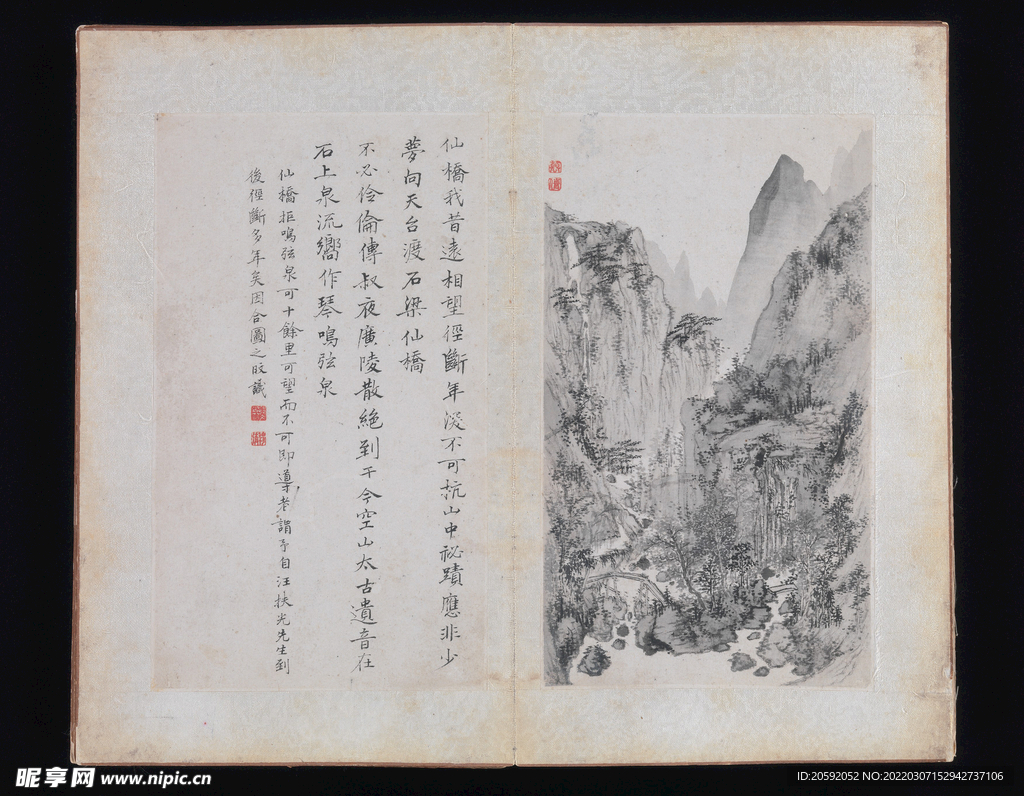 仙橋我昔遠相望徑斷年深不可抗山中祕蹟應非少
夢向天台渡石梁仙橋
不必伶倫傳叔夜廣陵散絕到于今空山太古遺音在
石上泉流嚮作琴鳴弦泉
仙橋拒鳴弦泉可十餘里可望而不可即導者謂予自汪扶光先生到
後徑斷多年矣因合圖之旼識
昵享网 www.nipic.cn
ID:20592052 NO:20220307152942737106